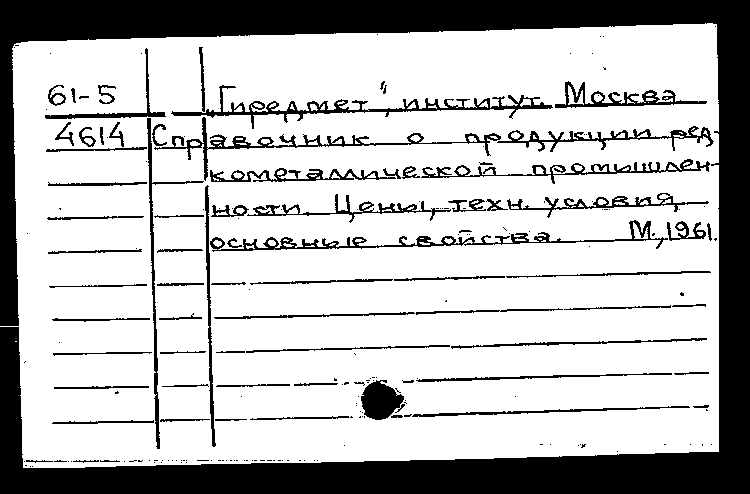 61-5 "Гиредмет", институт. Москва
4614 Справочник о продукции ред-
кометаллической промышлен-
ности. Цены, техн. условия,
основные свойства. М., 1961.